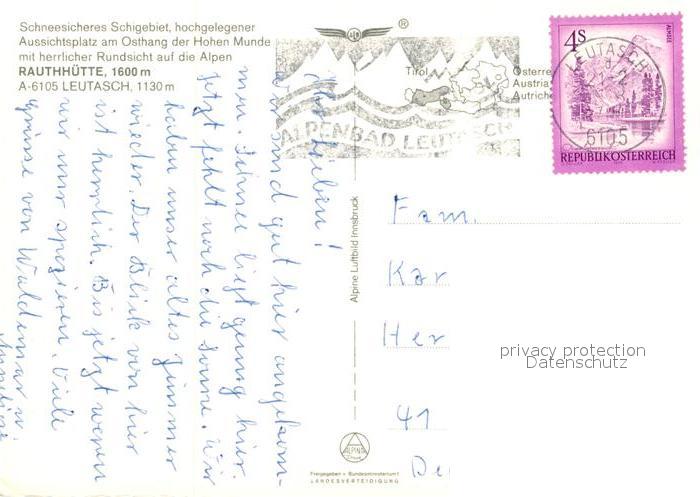 Schneesicheres Schigebiet, hochgelegener
Aussichtsplatz am Osthang der Hohen Munde
mit herrlicher Rundsicht auf die Alpen
RAUTHHÜTTE, 1600 m
A-6105 LEUTASCH, 1130 m
®
Tirol
Österre
Austria
Autriche
ALPENBAD LEUTASCH
LEUTASCH
6105
4S
ALMSEE
REPUBLIK ÖSTERREICH
Ihr Lieben!
wir sind gut hier angekom-
men. Schnee liegt genug hier.
Jetzt fehlt noch die Sonne. Wir
haben unser altes Zimmer
wieder. Der Blick von hier
ist herrlich. Bis jetzt waren
wir nur spazieren. Viele
Grüsse von Waldemar u.
Alpine Luftbild Innsbruck
Fam.
Kar
Her
41
De
privacy protection
Datenschutz
ALPINE
Freigegeben v. Bundesministerium f.
LANDESVERTEIDIGUNG